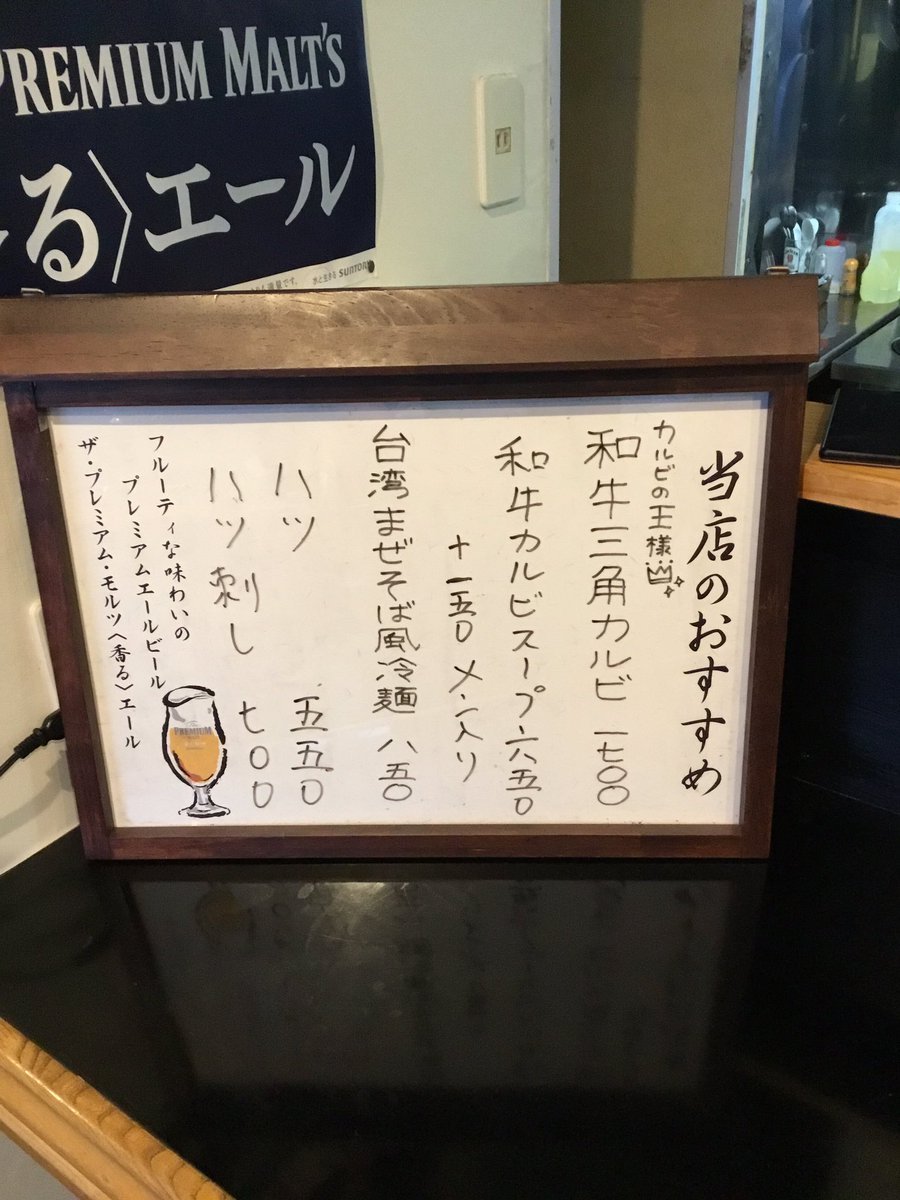 PREMIUM MALT'S
る〉エール
水と生きる SUNTORY
当店のおすすめ
カルビの王様
和牛三角カルビ 一七〇〇
和牛カルビスープ 六五〇
+一五〇 メン入り
台湾まぜそば風冷麺 八五〇
ハツ 五五〇
ハツ刺し 七〇〇
フルーティな味わいの
プレミアムエールビール
ザ・プレミアム・モルツ〈香る〉エール
PREMIUM